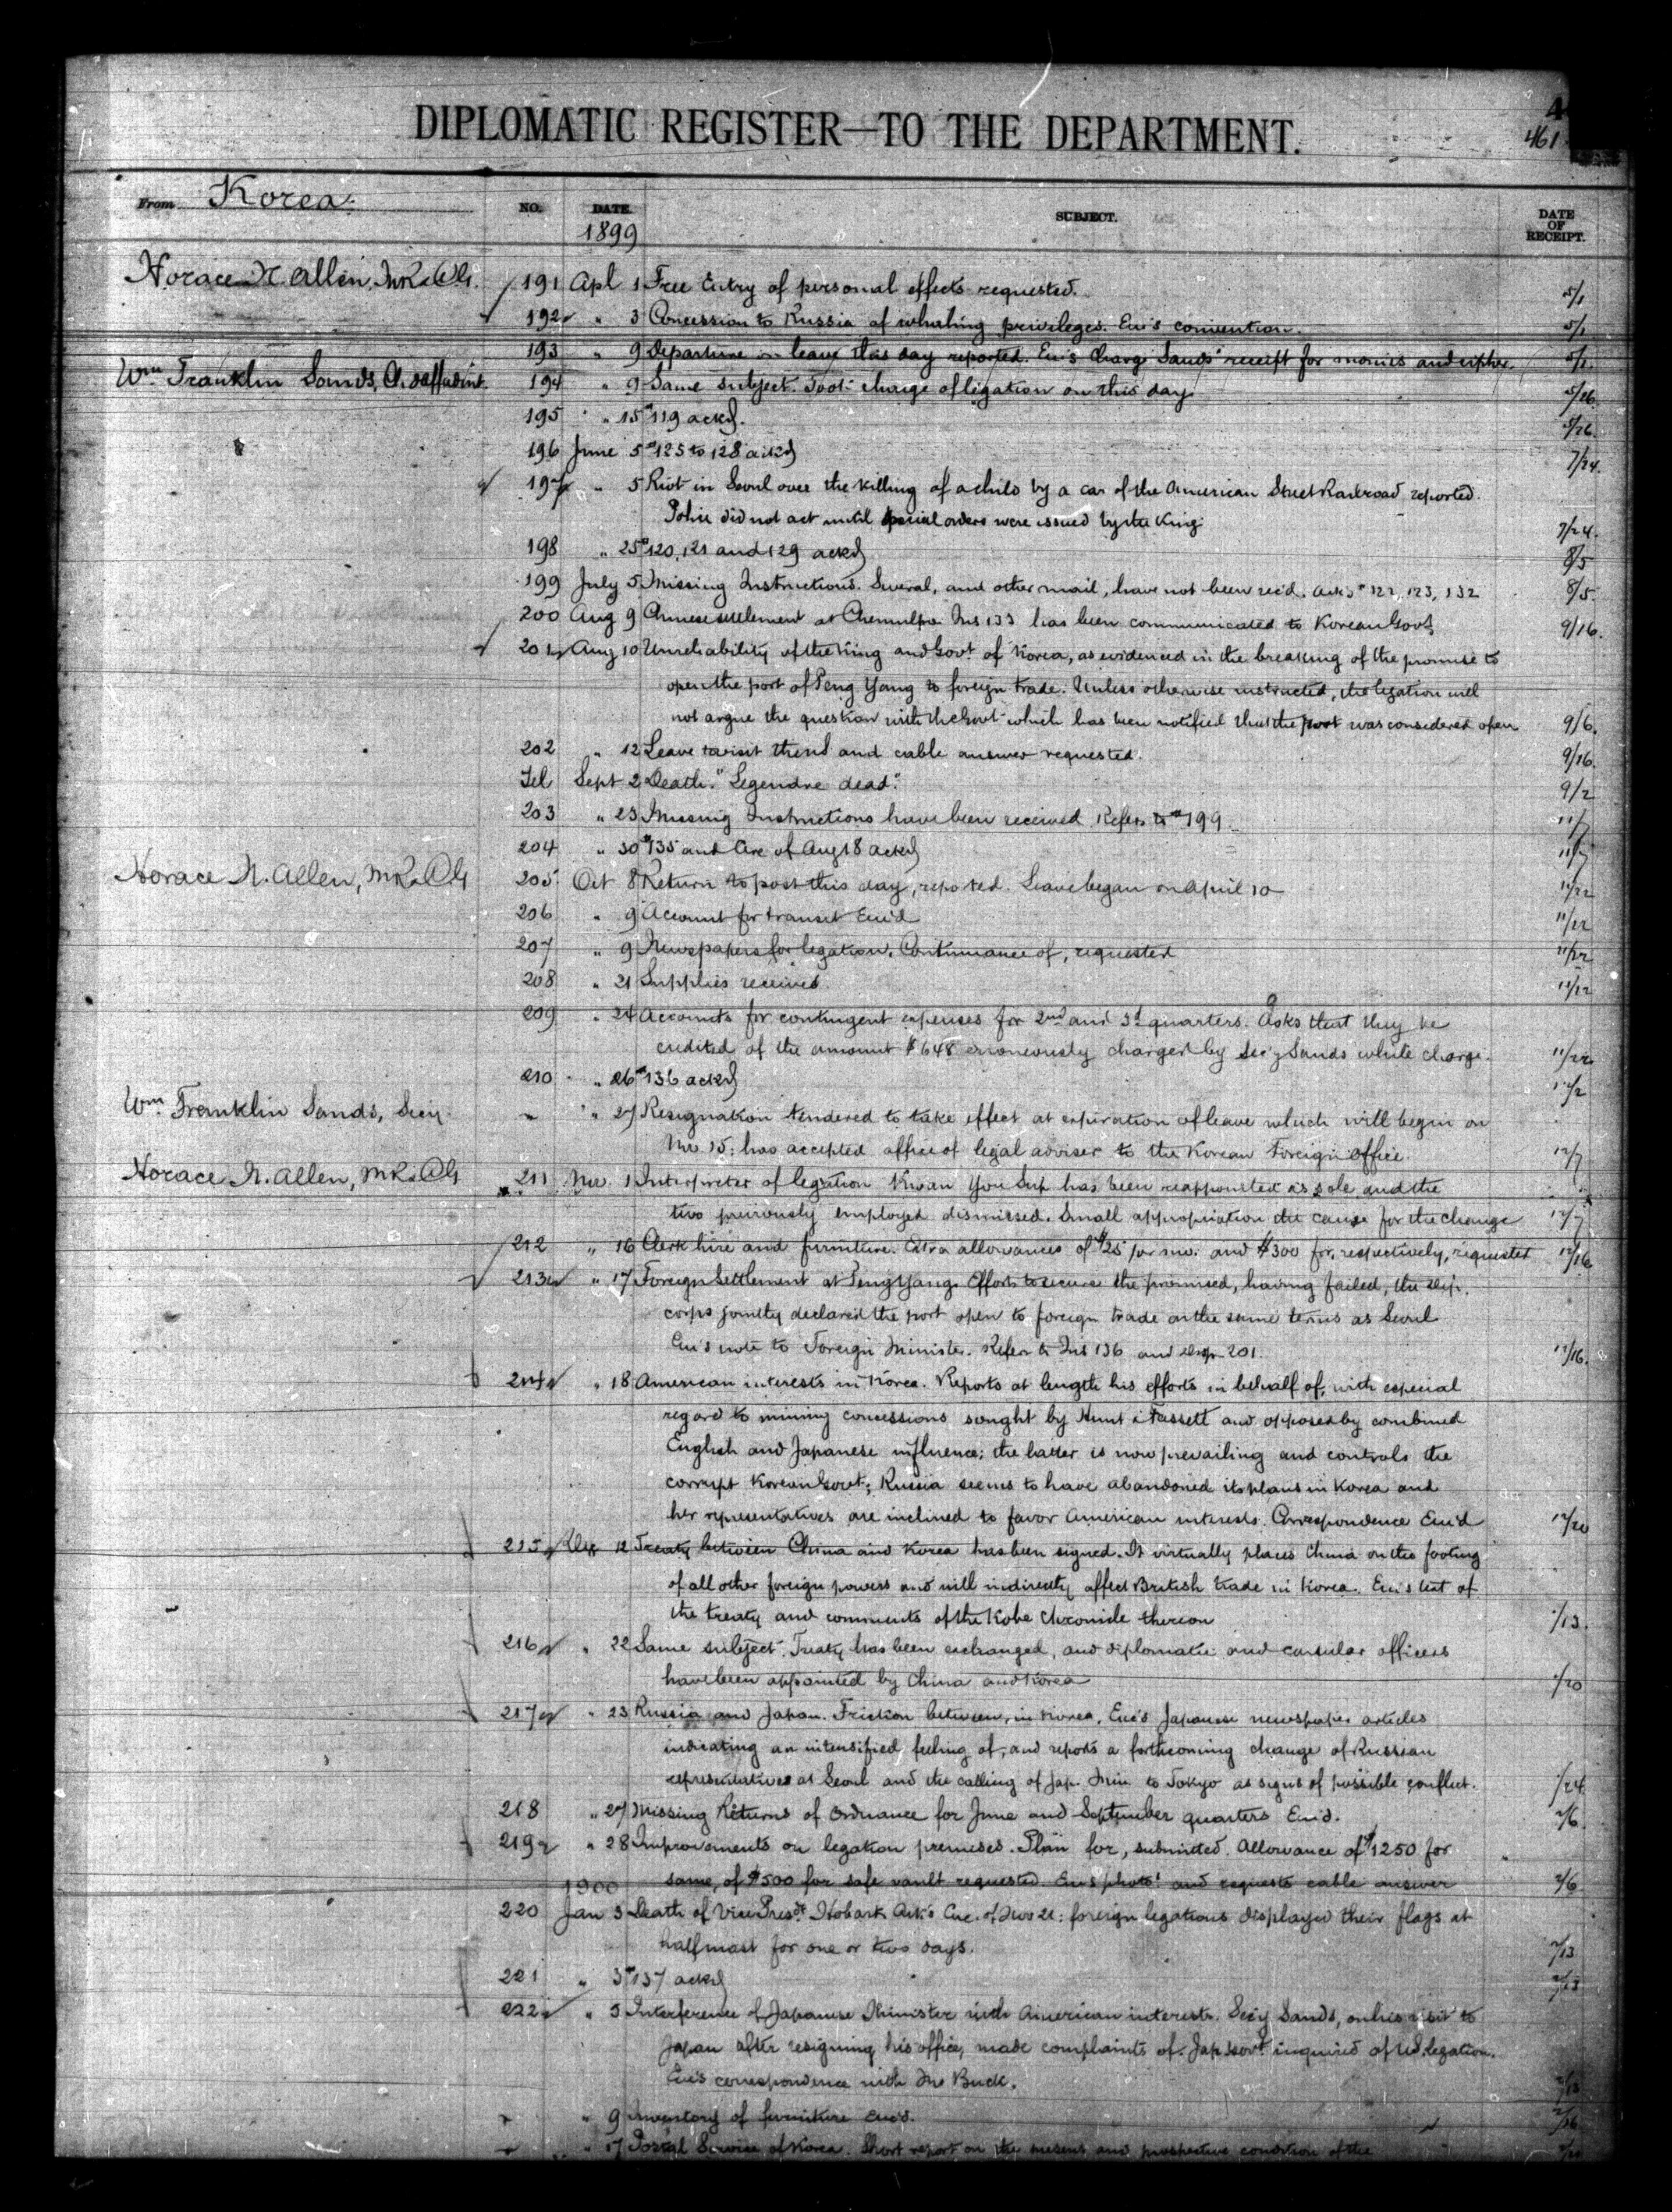 DIPLOMATIC REGISTER—TO THE DEPARTMENT.
461
From Korea.
NO. DATE SUBJECT. DATE OF RECEIPT.
1899
Horace N. Allen, MR&CG. 191 Apl 1 Free Entry of personal effects requested. 5/1
192 " 3 Concession to Russia of whaling privileges. Enc's convention. 5/1
193 " 9 Departure on leave this day reported. Enc's Chargé Sands' receipt for monies and cipher. 5/1
Wm Franklin Sands, Ch. d'aff ad int. 194 " 9 Same subject. Took charge of legation on this day. 5/26
195 " 15 #119 ackd. 5/26.
196 June 5 #125 to 128 ackd 7/24.
197 " 5 Riot in Seoul over the killing of a child by a car of the American Street Railroad reported.
Police did not act until special orders were issued by the King. 7/24.
198 " 25 #120, 121 and 129 ackd 8/5
199 July 5 Missing Instructions. Several, and other mail, have not been rec'd. Acks # 122, 123, 132 8/5.
200 Aug 9 Chinese settlement at Chemulpo Ins 133 has been communicated to Korean Govt 9/16.
201 Aug 10 Unreliability of the King and Govt of Korea, as evidenced in the breaking of the promise to
open the port of Peng Yang to foreign trade. Unless otherwise instructed, the legation will
not argue the question with the Govt which has been notified that the port was considered open 9/6.
202 " 12 Leave to visit the U.S. and cable answer requested. 9/16.
Tel Sept 2 Death. "Legendre dead." 9/2
203 " 23 Missing Instructions have been received Refers to #199. 11/7
204 " 30 #135 and Circ of Aug 18 ackd 11/7
Horace N. Allen, MR&CG 205 Oct 8 Return to post this day, reported. Leave began on April 10 11/22
206 " 9 Account for transit Enc'd 11/22
207 " 9 Newspapers for legation. Continuance of, requested 11/22
208 " 21 Supplies received. 11/22
209 " 24 Accounts for contingent expenses for 2nd and 3d quarters. Asks that they be
credited of the amount $6.48 erroneously charged by Sec'y Sands while chargé. 11/22
210 " 26 #136 ackd 12/2
Wm Franklin Sands, Secy. " " 27 Resignation tendered to take effect at expiration of leave which will begin on
Nov. 15: has accepted office of legal adviser to the Korean Foreign Office. 12/7
Horace N. Allen, MR&CG 211 Nov. 1 Interpreter of legation Kwan You Sup has been reappointed as sole and the
two previously employed dismissed. Small appropriation the cause for the change 12/7
212 " 16 Clerk hire and furniture. Extra allowances of $25 per mo. and $300 for, respectively, requested 12/16
213 " 17 Foreign Settlement at Peng Yang. Efforts to secure the promised, having failed, the dip.
corps jointly declared the port open to foreign trade on the same terms as Seoul
Enc's note to Foreign Minister. Refers to Ins 136 and desp. 201. 12/16.
214 " 18 American interests in Korea. Reports at length his efforts in behalf of, with especial
regard to mining concessions sought by Hunt & Fassett and opposed by combined
English and Japanese influence; the latter is now prevailing and controls the
corrupt Korean Govt; Russia seems to have abandoned its plans in Korea and
her representatives are inclined to favor American interests. Correspondence Enc'd 12/20
215 Dec 12 Treaty between China and Korea has been signed. It virtually places China on the footing
of all other foreign powers and will indirectly affect British trade in Korea. Enc's text of
the treaty and comments of the Kobe Chronicle thereon 1/13.
216 " 22 Same subject. Treaty has been exchanged, and diplomatic and consular officers
have been appointed by China and Korea 1/20
217 " 23 Russia and Japan. Friction between, in Korea, Enc's Japanese newspaper articles
indicating an intensified feeling of, and reports a forthcoming change of Russian
representatives at Seoul and the calling of Jap. Min. to Tokyo as signs of possible conflict. 1/24
218 " 27 Missing Returns of Ordnance for June and September quarters Enc'd. 2/6.
219 " 28 Improvements on legation premises. Plan for, submitted. Allowance of $1250 for
same, of $500 for safe vault requested. Enc's photo' and requests cable answer 2/6
1900
220 Jan 3 Death of Vice Presdt Hobart. Ack's Circ. of Nov 21: foreign legations displayed their flags at
half mast for one or two days. 2/13
221 " 3 #137 ackd 2/13
222 " 3 Interference of Japanese Minister with American interests. Sec'y Sands, on his visit to
Japan after resigning his office, made complaints of. Jap. Govt inquired of U.S. legation.
Enc's correspondence with Mr Buck. 2/13
" " 9 Inventory of furniture enc'd. 2/16
" " 17 Postal Service of Korea. Short report on the present and prospective condition of the